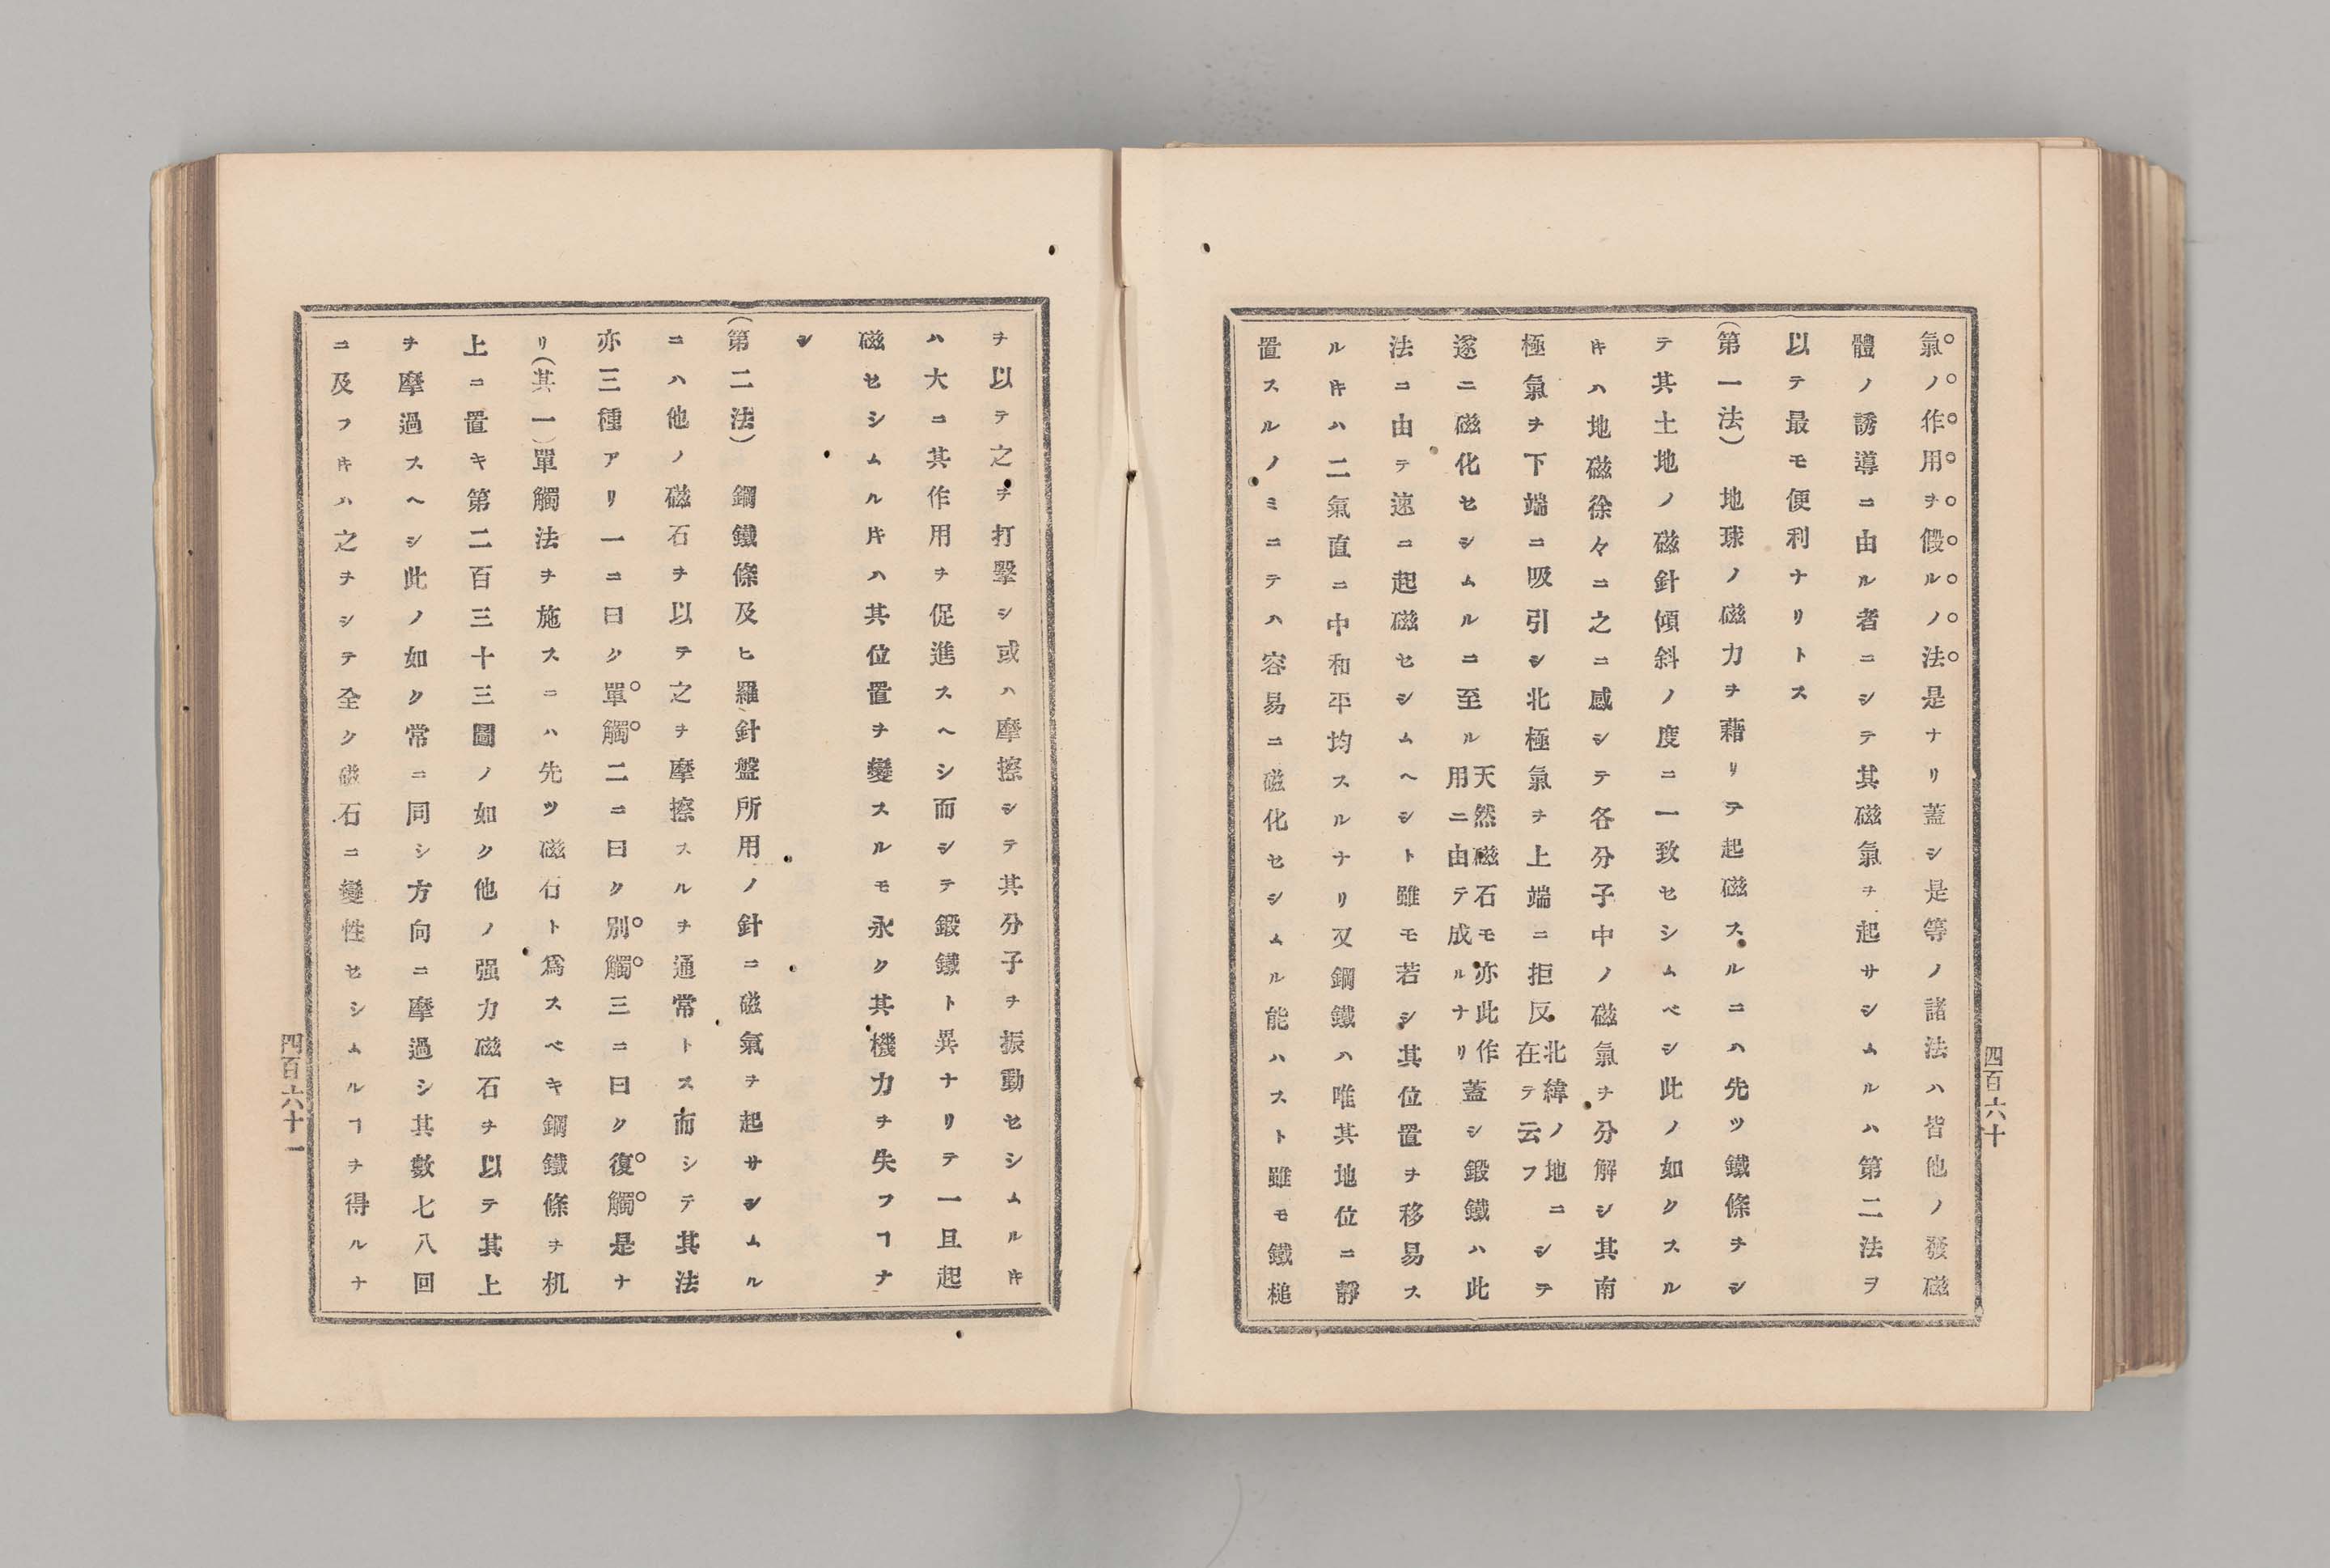 氣ノ作用ヲ假ルノ法是ナリ蓋シ是等ノ諸法ハ皆他ノ發磁
體ノ誘導ニ由ル者ニシテ其磁氣ヲ起サシムルハ第二法ヲ
以テ最モ便利ナリトス
(第一法) 地球ノ磁力ヲ藉リテ起磁スルニハ先ツ鐵條ヲシ
テ其土地ノ磁針傾斜ノ度ニ一致セシムベシ此ノ如クスル
キハ地磁徐々ニ之ニ感シテ各分子中ノ磁氣ヲ分解シ其南
極氣ヲ下端ニ吸引シ北極氣ヲ上端ニ拒反北緯ノ地ニ在テ云フシテ
遂ニ磁化セシムルニ至ル天然磁石モ亦此作用ニ由テ成ルナリ蓋シ鍛鐵ハ此
法ニ由テ速ニ起磁セシムヘシト雖モ若シ其位置ヲ移易ス
ルキハ二氣直ニ中和平均スルナリ又鋼鐵ハ唯其地位ニ靜
置スルノミニテハ容易ニ磁化セシムル能ハスト雖モ鐵槌
四百六十
ヲ以テ之ヲ打擊シ或ハ摩擦シテ其分子ヲ振動セシムルキ
ハ大ニ其作用ヲ促進スヘシ而シテ鍛鐵ト異ナリテ一旦起
磁セシムル片ハ其位置ヲ變スルモ永ク其機力ヲ失フヿナ
シ
(第二法) 鋼鐵條及ヒ羅針盤所用ノ針ニ磁氣ヲ起サシムル
ニハ他ノ磁石ヲ以テ之ヲ摩擦スルヲ通常トス而シテ其法
亦三種アリ一ニ曰ク單觸二ニ曰ク別觸三ニ曰ク復觸是ナ
リ(其一)單觸法ヲ施スニハ先ツ磁石ト爲スベキ鋼鐵條ヲ机
上ニ置キ第二百三十三圖ノ如ク他ノ强力磁石ヲ以テ其上
ヲ摩過スヘシ此ノ如ク常ニ同シ方向ニ摩過シ其數七八回
ニ及フキハ之ヲシテ全ク磁石ニ變性セシムルヿヲ得ルナ
四百六十一